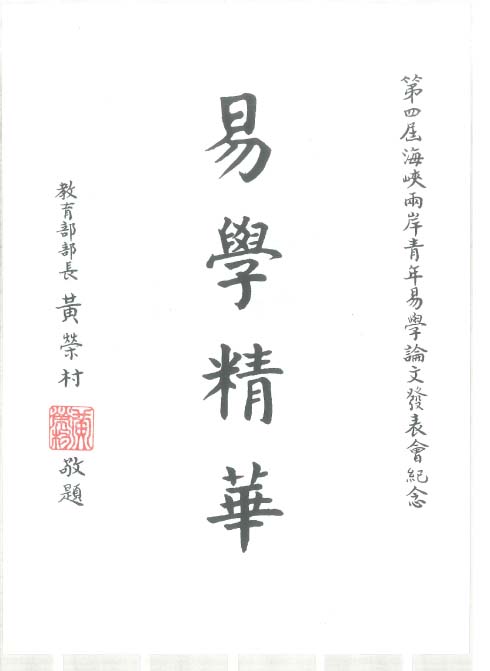 第四屆海峽兩岸青年易學論文發表會紀念
易學精華
教育部部長 黃榮村 敬題
黃榮村